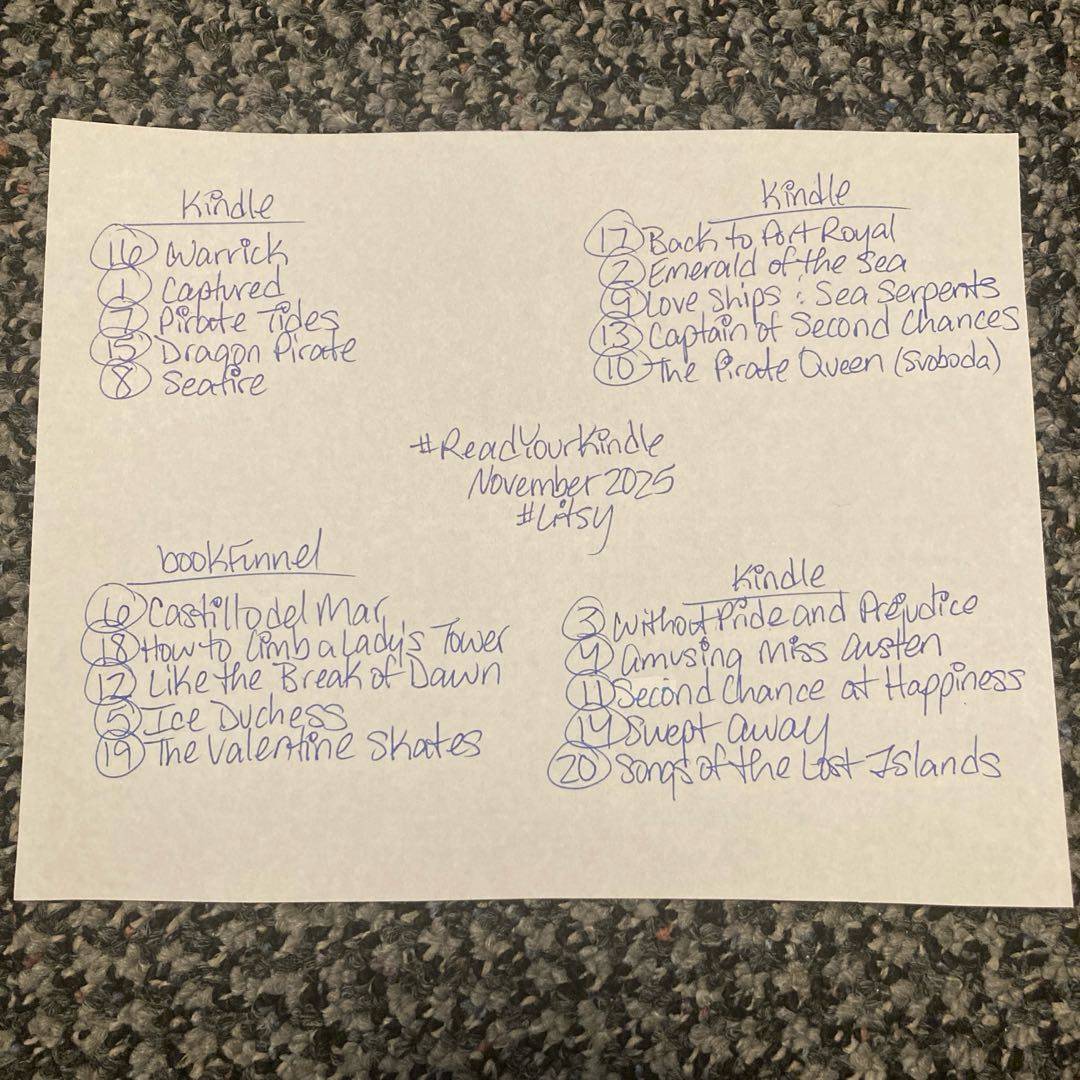 Kindle
16 Warrick
1 Captured
7 Pirate Tides
15 Dragon Pirate
8 Seafire
Kindle
17 Back to Port Royal
2 Emerald of the Sea
9 Love Ships : Sea Serpents
13 Captain of Second Chances
10 The Pirate Queen (Svoboda)
#ReadYourKindle
November 2025
#Litsy
bookFunnel
6 Castillo del Mar
18 How to Climb a Lady's Tower
12 Like the Break of Dawn
5 Ice Duchess
19 The Valentine Skates
Kindle
3 Without Pride and Prejudice
4 Amusing Miss Austen
11 Second Chance at Happiness
14 Swept Away
20 Songs of the Lost Islands